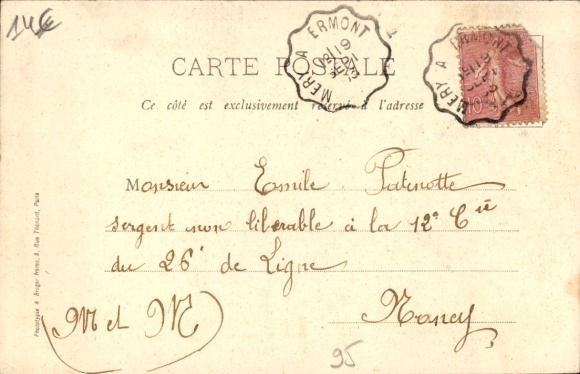 14€
MERY A ERMONT
MERY A ERMONT
CARTE POSTALE
Ce côté est exclusivement réservé à l'adresse
Monsieur Emile Patinotte
sergent non libérable à la 12e Cie
du 26e de Ligne
Nancy
(M et M)
95